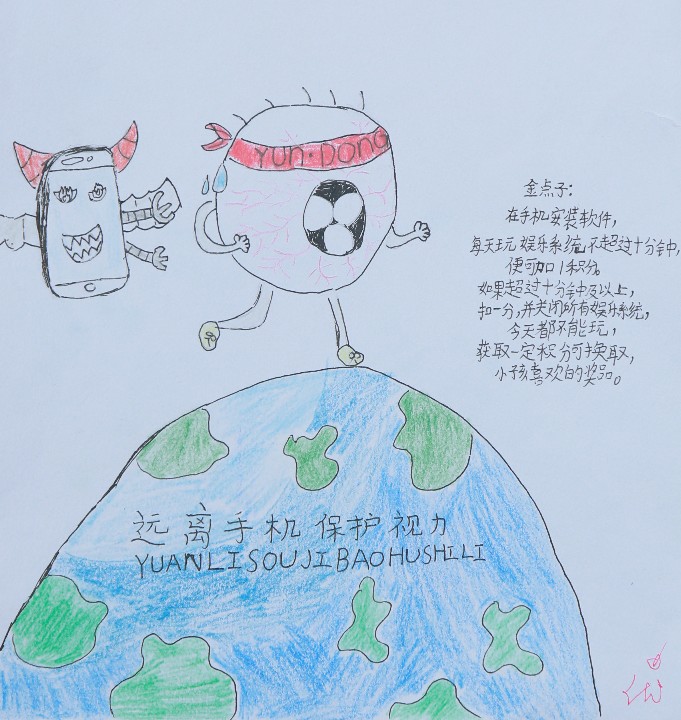 YUN·DONG
金点子:
在手机安装软件,
每天玩娱乐系统,不超过十分钟,
便可加1积分。
如果超过十分钟及以上,
扣一分,并关闭所有娱乐系统,
今天都不能玩,
获取一定积分可换取,
小孩喜欢的奖品。
远离手机保护视力
YUANLISOUJIBAOHUSHILI